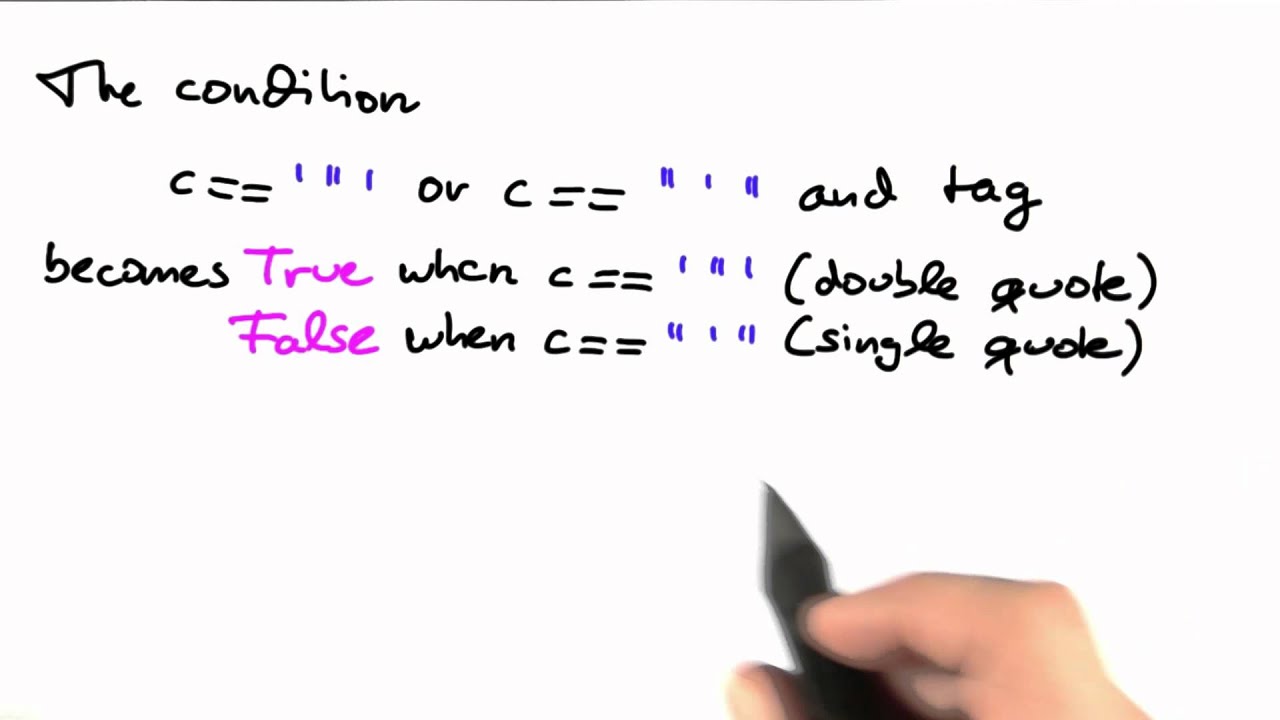 The condition
c == '"' or c == "'" and tag
becomes True when c == '"' (double quote)
False when c == "'" (single quote)